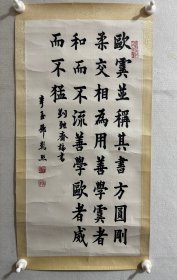 歐虞並稱其書方圓剛
柔交相為用善學虞者
和而不流善學歐者威
而不猛
劉融齋語書